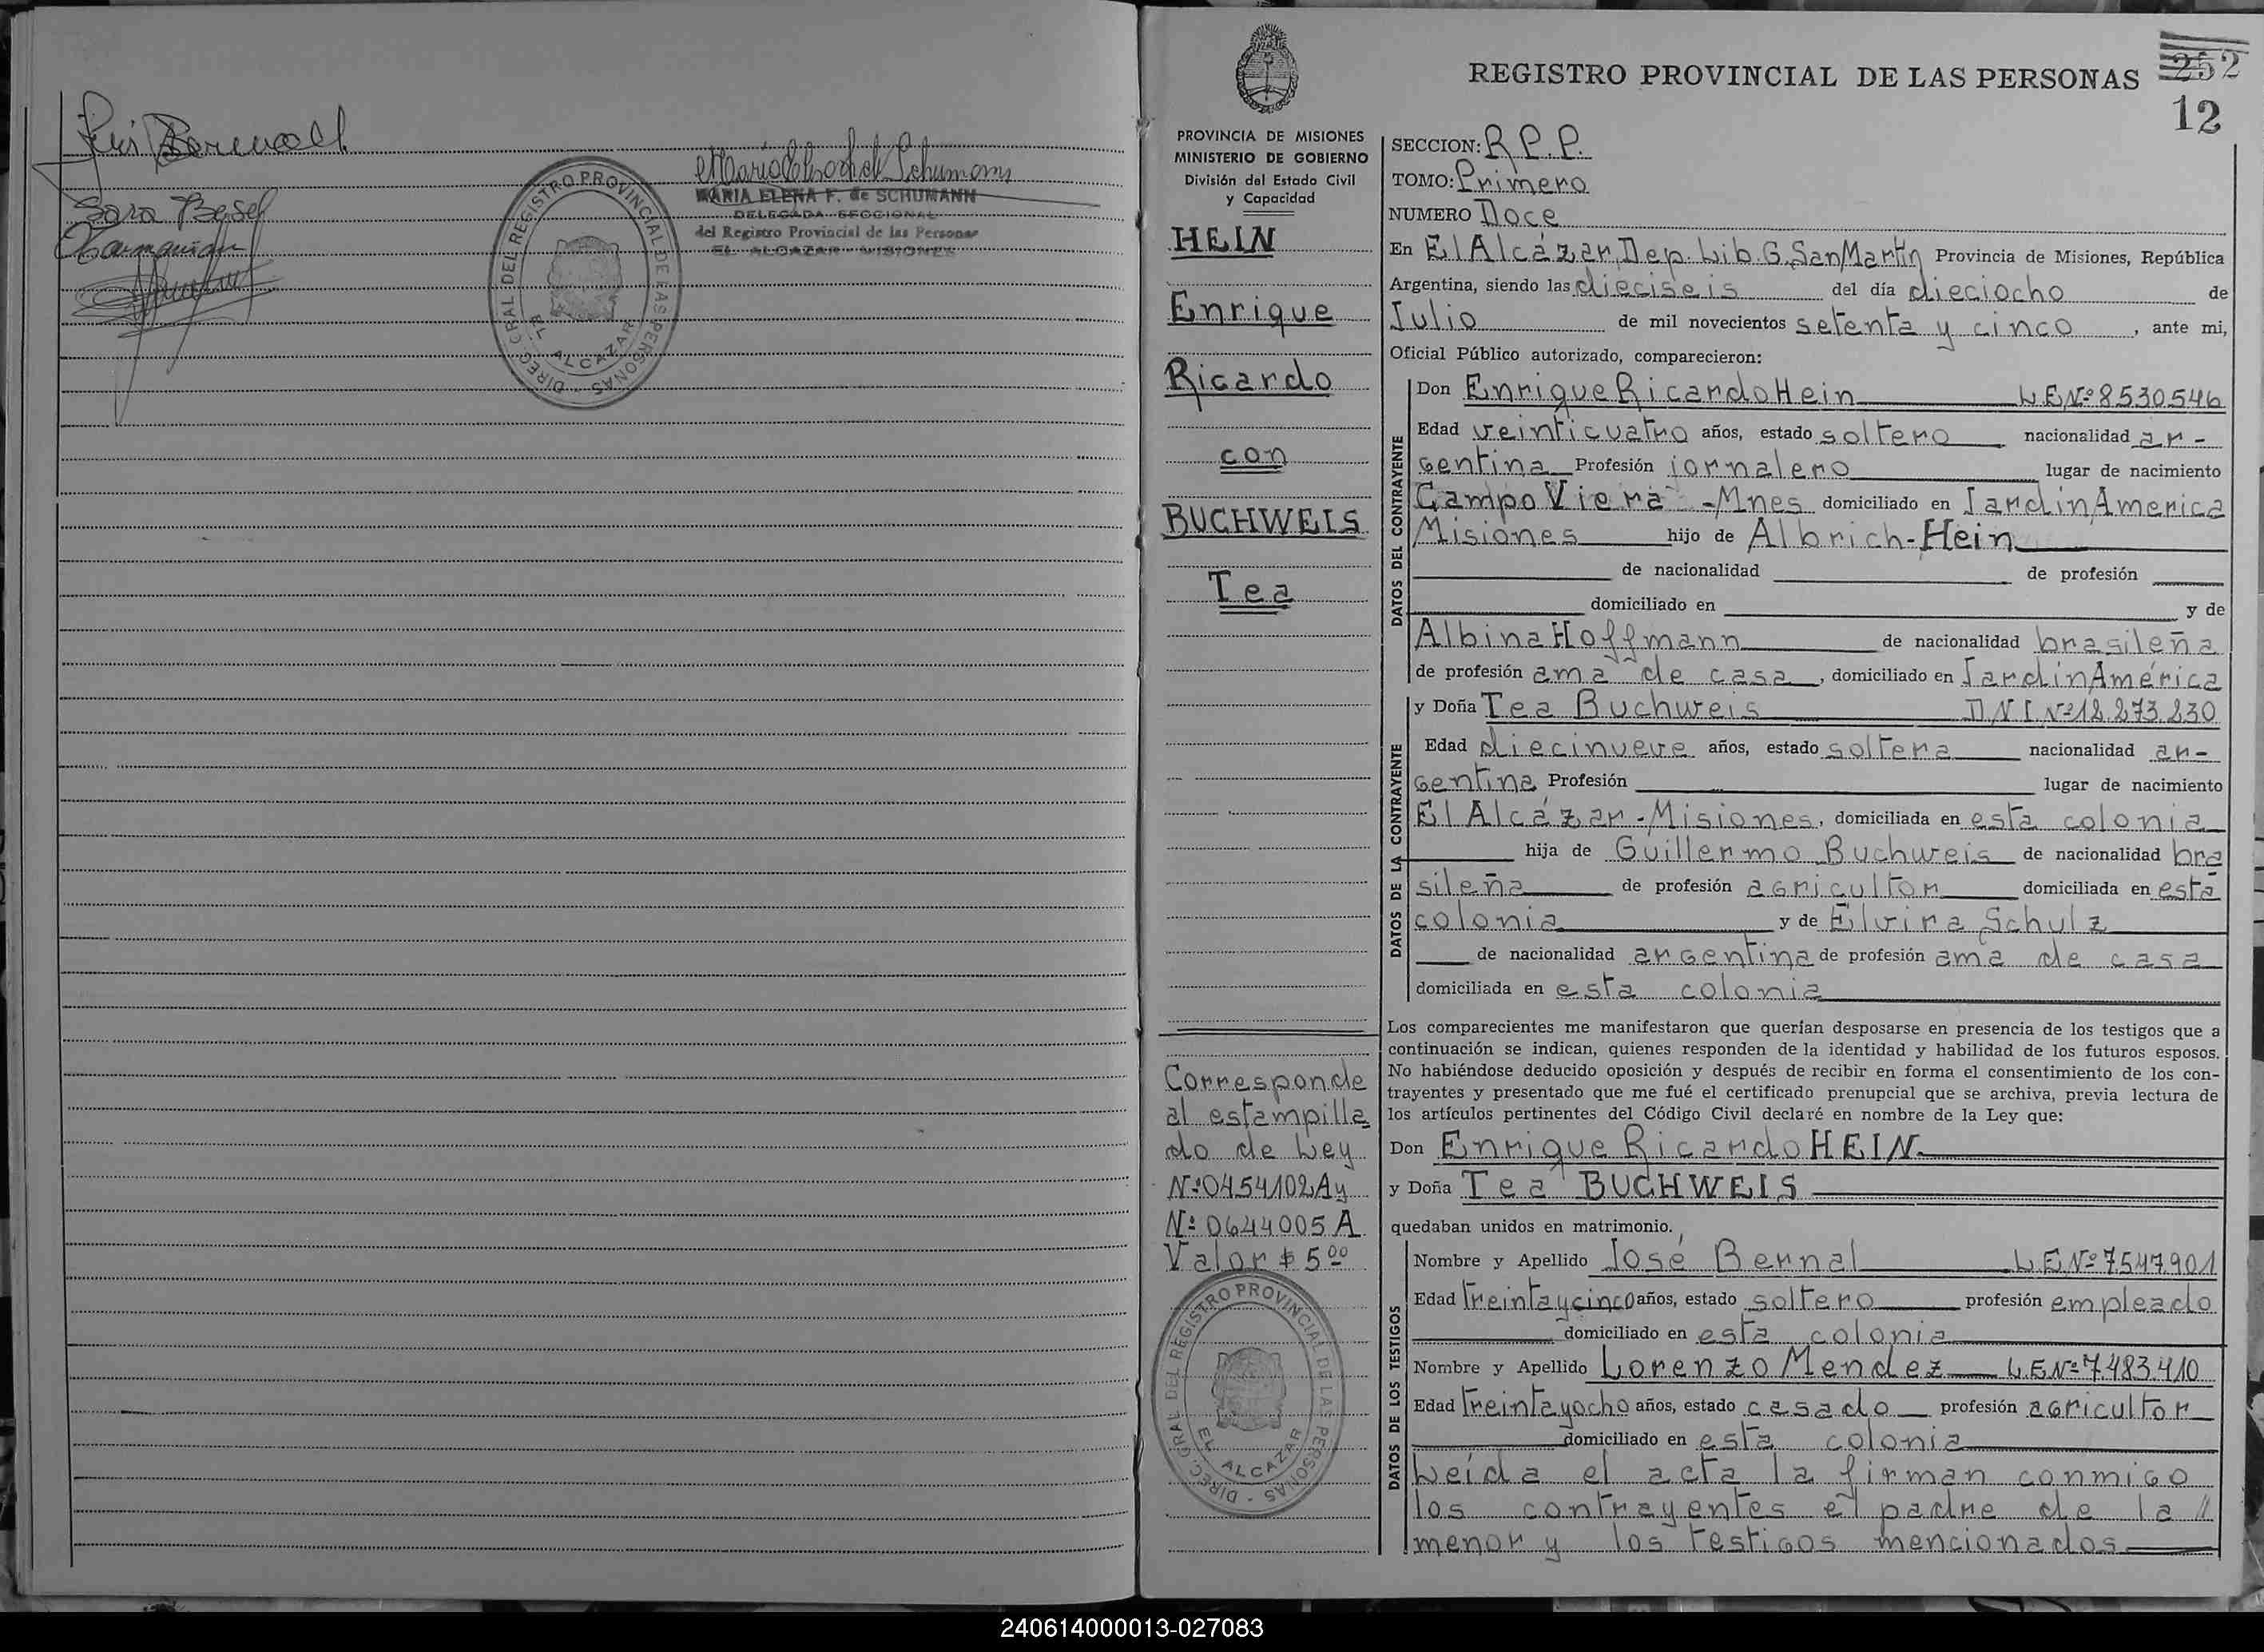 Sara Besel
MARIA ELENA F. de SCHUMANN
DELEGADA SECCIONAL
del Registro Provincial de las Personas
EL ALCAZAR - MISIONES
DIREC. GRAL DEL REGISTRO PROVINCIAL DE LAS PERSONAS
EL ALCAZAR
REGISTRO PROVINCIAL DE LAS PERSONAS 252
12
PROVINCIA DE MISIONES
MINISTERIO DE GOBIERNO
División del Estado Civil
y Capacidad
HEIN
Enrique
Ricardo
con
BUCHWEIS
Tea
Corresponde
al estampilla
do de Ley
Nº 0454102 A y
Nº 0644005 A
Valor $ 5 00
DIREC. GRAL DEL REGISTRO PROVINCIAL DE LAS PERSONAS
EL ALCAZAR
SECCION: R.P.P.
TOMO: Primero
NUMERO Doce
En El Alcázar, Dep. Lib. G. San Martín Provincia de Misiones, República
Argentina, siendo las dieciseis del día dieciocho de
Julio de mil novecientos setenta y cinco, ante mi,
Oficial Público autorizado, comparecieron:
DATOS DEL CONTRAYENTE
Don Enrique Ricardo Hein L.E.Nº 8530546
Edad veinticuatro años, estado soltero nacionalidad ar-
gentina Profesión jornalero lugar de nacimiento
Campo Viera - Mnes domiciliado en Jardin America
Misiones hijo de Albrich - Hein
de nacionalidad de profesión
domiciliado en y de
Albina Hoffmann de nacionalidad brasileña
de profesión ama de casa, domiciliado en Jardin América
DATOS DE LA CONTRAYENTE
y Doña Tea Buchweis D.N.I. Nº 12.273.230
Edad diecinueve años, estado soltera nacionalidad ar-
gentina Profesión lugar de nacimiento
El Alcázar - Misiones, domiciliada en esta colonia
hija de Guillermo Buchweis de nacionalidad bra
sileña de profesión agricultor domiciliada en esta
colonia y de Elvira Schulz
de nacionalidad argentina de profesión ama de casa
domiciliada en esta colonia
Los comparecientes me manifestaron que querían desposarse en presencia de los testigos que a
continuación se indican, quienes responden de la identidad y habilidad de los futuros esposos.
No habiéndose deducido oposición y después de recibir en forma el consentimiento de los con-
trayentes y presentado que me fué el certificado prenupcial que se archiva, previa lectura de
los artículos pertinentes del Código Civil declaré en nombre de la Ley que:
Don Enrique Ricardo HEIN
y Doña Tea BUCHWEIS
quedaban unidos en matrimonio.
DATOS DE LOS TESTIGOS
Nombre y Apellido José Bernal L.E.Nº 7547901
Edad treinta y cinco años, estado soltero profesión empleado
domiciliado en esta colonia
Nombre y Apellido Lorenzo Mendez L.E.Nº 7.483.410
Edad treinta y ocho años, estado casado profesión agricultor
domiciliado en esta colonia
Leída el acta la firman conmigo
los contrayentes el padre de la //
menor y los testigos mencionados
240614000013-027083